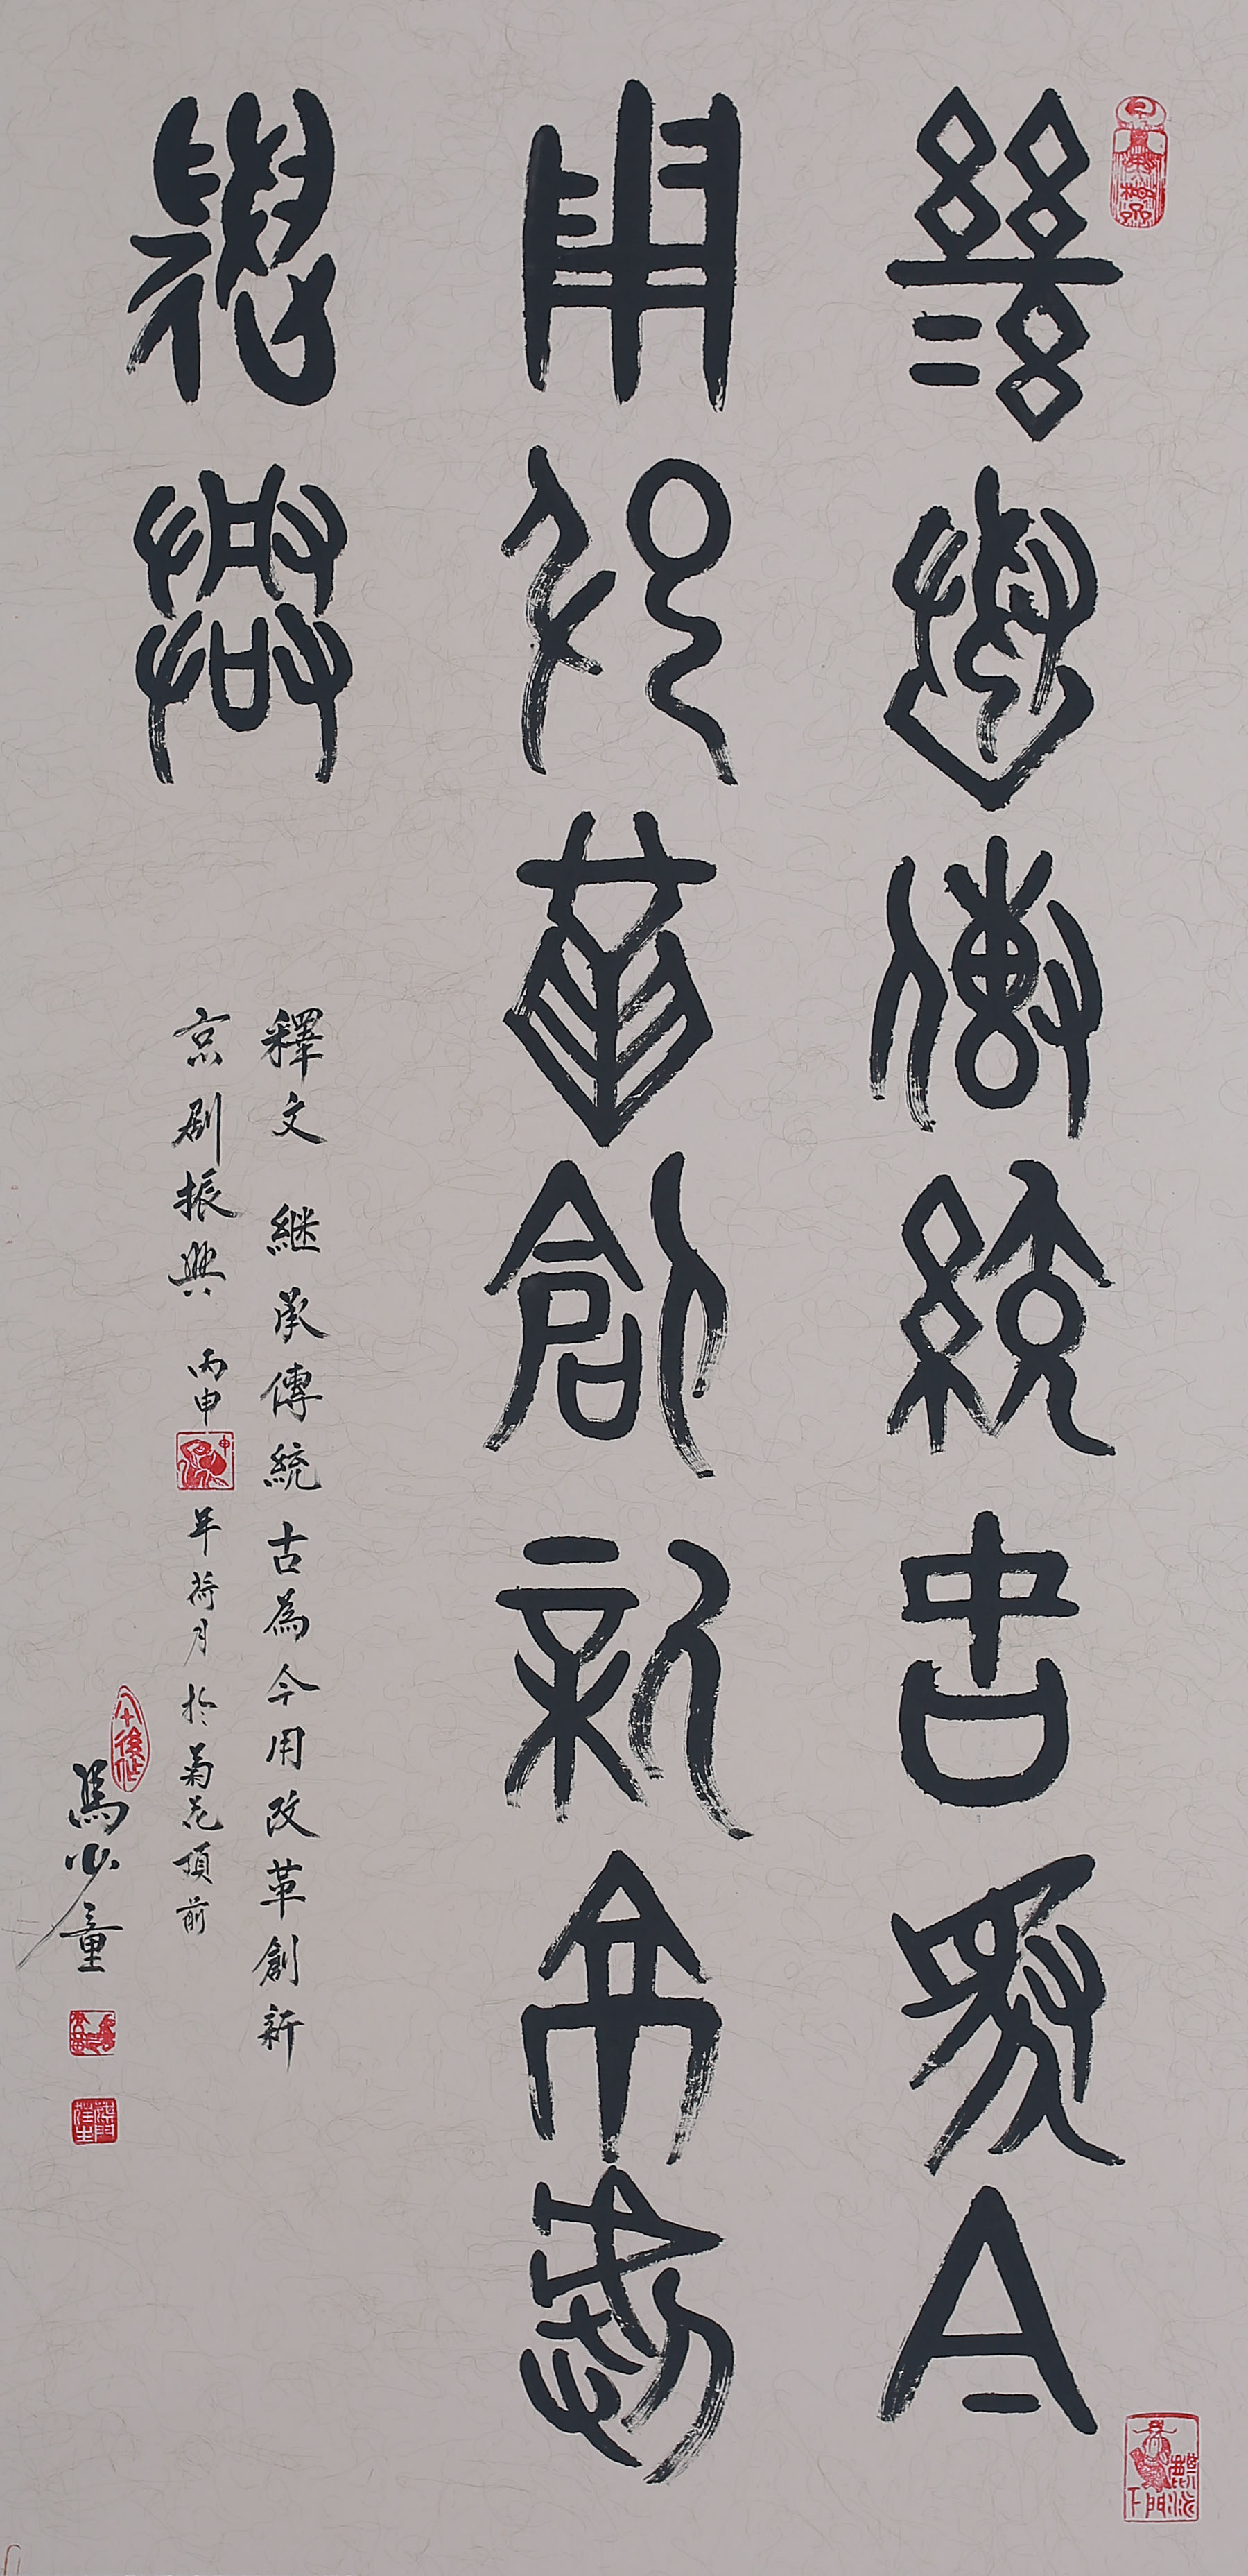 繼承傳統古為今
用改革創新京劇
振興
釋文 繼承傳統古為今用改革創新
京劇振興 丙申年荷月於菊花頂前
馬少童